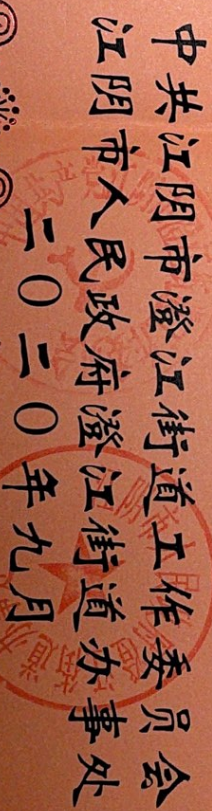 中共江阴市澄江街道工作委员会
江阴市人民政府澄江街道办事处
二〇二〇年九月